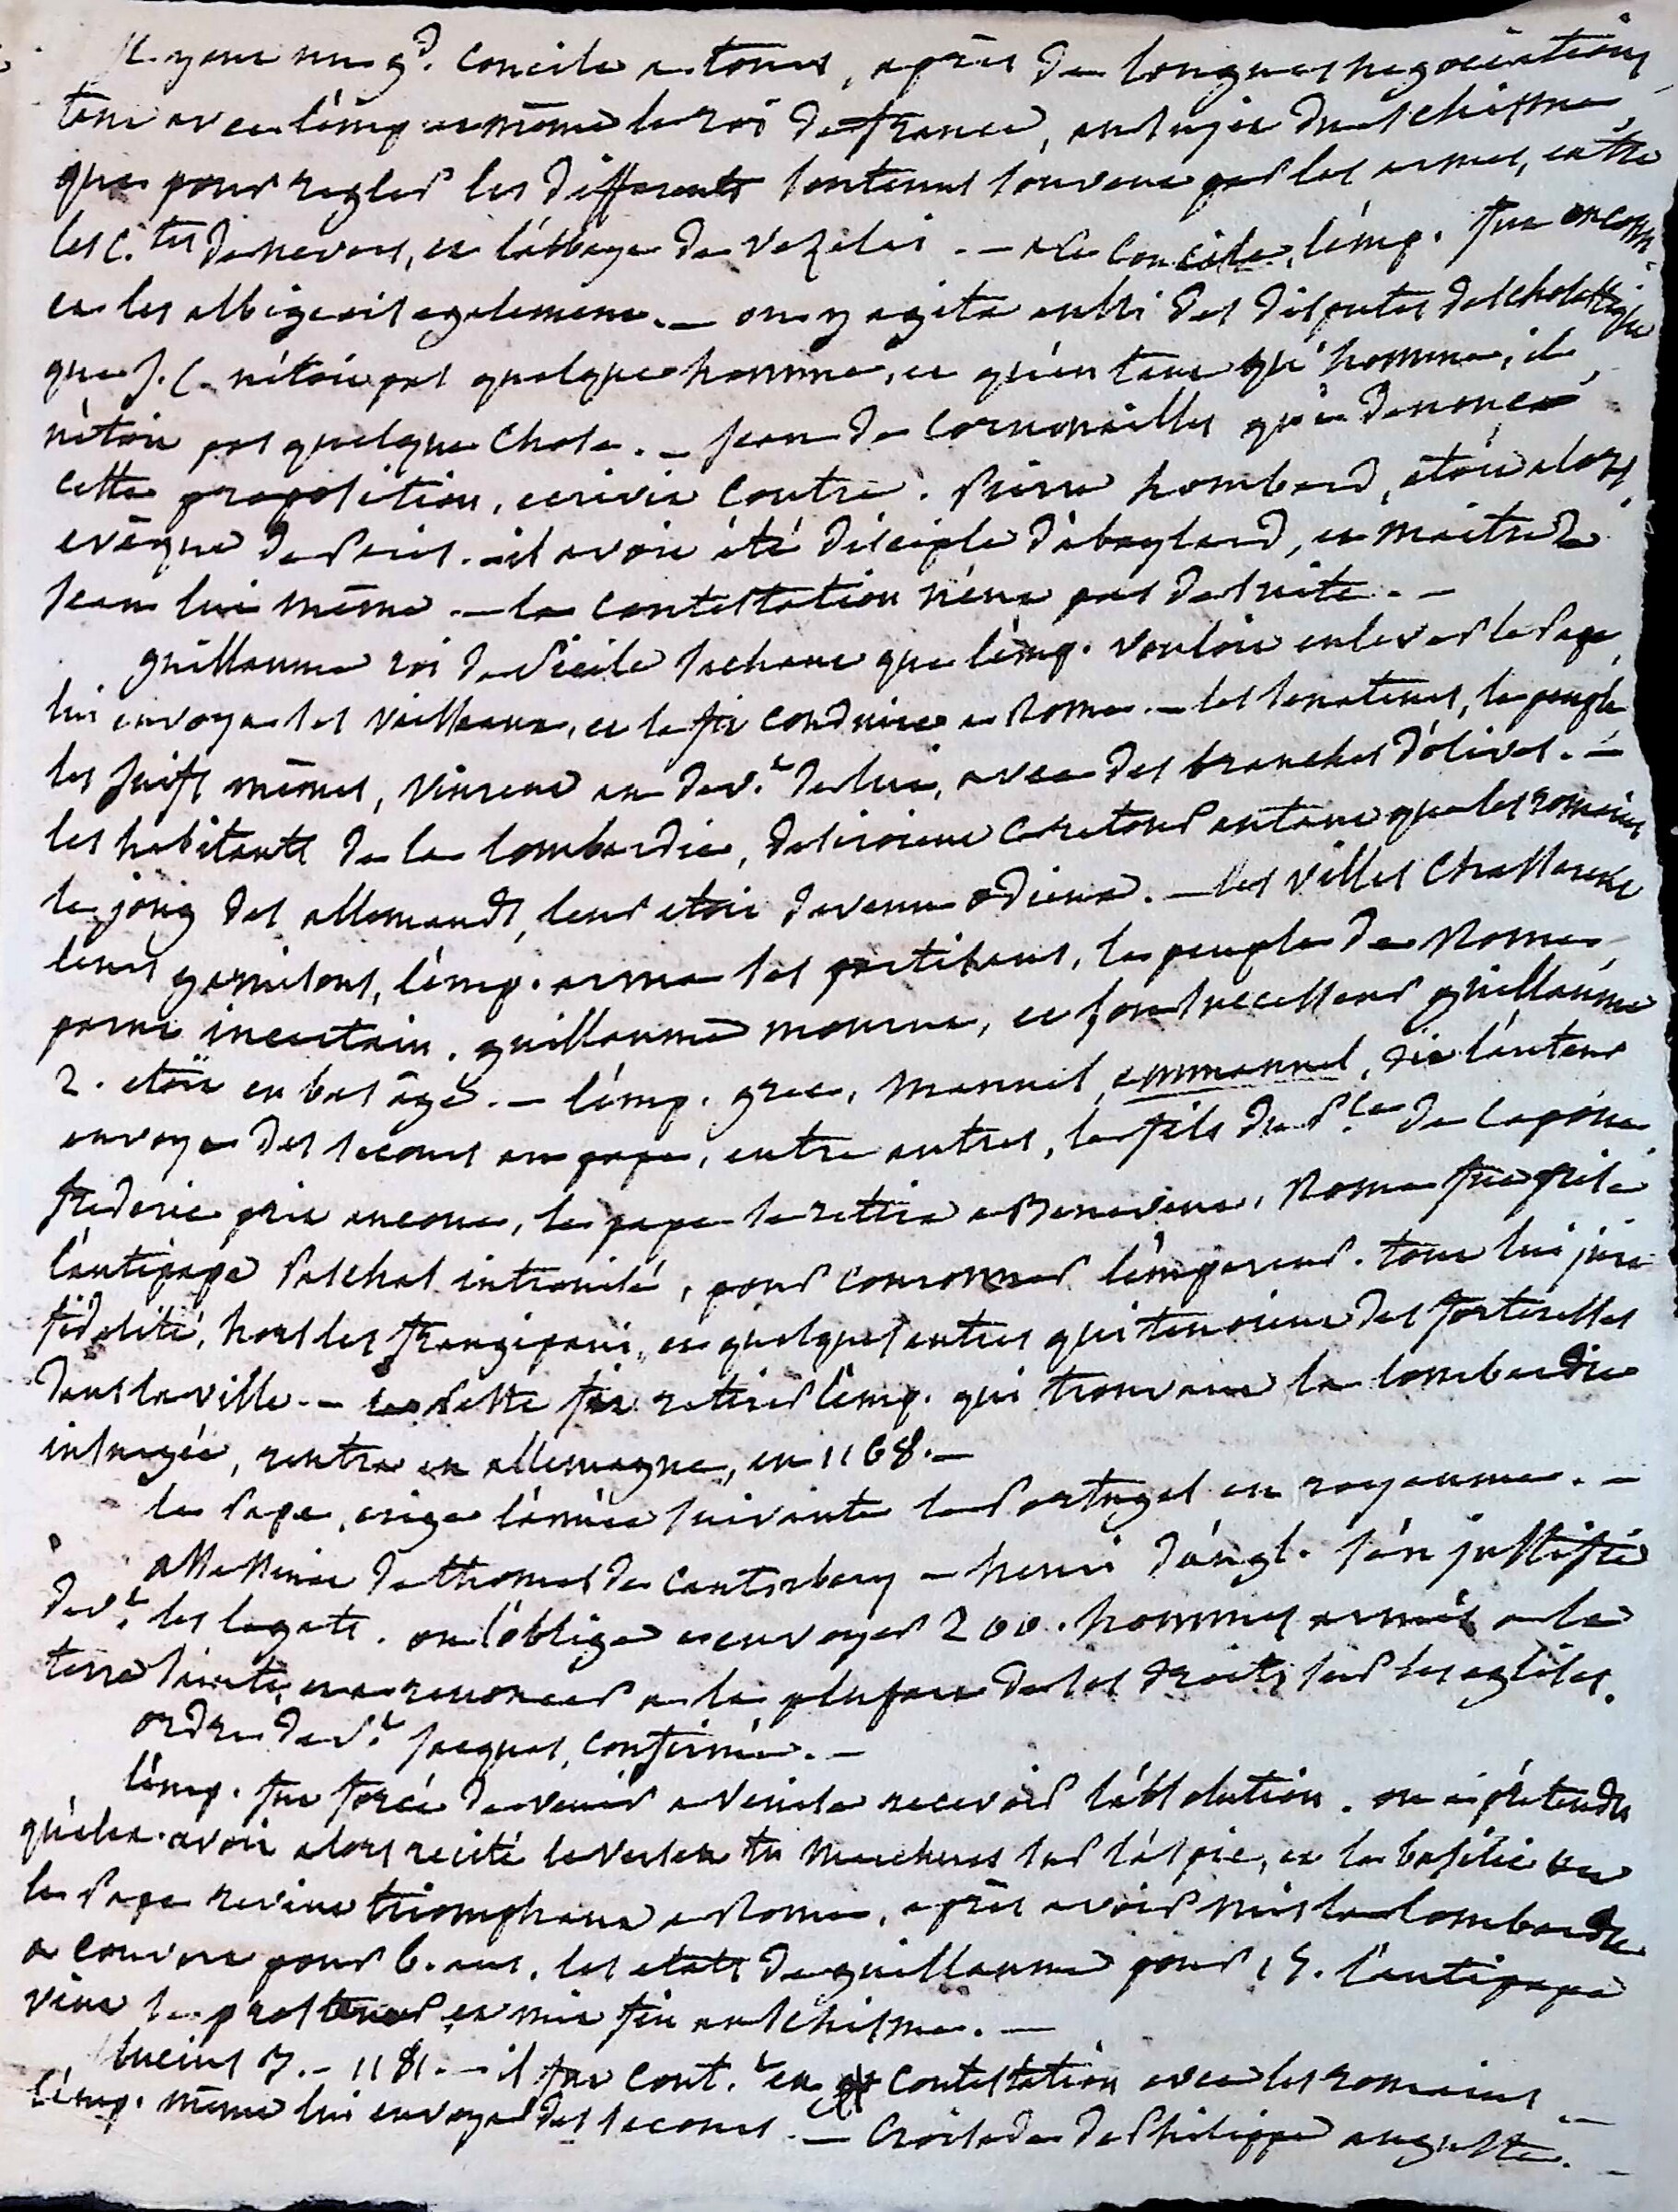 Il y eut un g.d concile a tours, après de longues negociations
tant avec l'emp. et même le roi de france, au sujet du schisme
que pour regler les differents soutenus souvent par les armes, entre
les c.tes de nevers, et l'abbaye de vezelai. — a ce concile, l'emp. fut excom.
et les albigeois egalement. — on y agita aussi des disputes de scholastique
que J. C. n'étoit pas quelque homme, et qu'en tant qu'homme, il
n'étoit pas quelque chose. — Jean de Cornouailles qui denonça
cette proposition, ecrivit contre. Pierre Lombard, étoit alors
evêque de Paris. — il avoit été disciple d'abaylard, et maitre de
Jean lui même. — la contestation n'eut pas de suite. —
guillaume roi de Sicile sachant que l'emp. vouloit enlever le Pape,
lui envoya des vaisseaux, et le fit conduire a Rome. — les senateurs, le peuple
les juifs mêmes, vinrent au dev.t de lui, avec des branches d'olives. —
les habitants de la lombardie, desiroient ce retour autant que les romains
le joug des allemands, leur etoit devenu odieux. — les villes chasserent
leurs garnisons, l'emp. arma ses partisans, le peuple de Rome,
parut incertain. guillaume mourut, et son successeur guillaume
2. etoit en bas âge. — l'emp. grec, Manuel, emmanuel, dit l'auteur
envoya des secours au pape, entre autres, le fils du P.ce de Capoue.
frederic prit ancone, le pape se retira a Benevent, Rome fut prise
l'antipape Paschal intronisé, pour couronner l'empereur. tout lui jura
fidelité, hors les frangipani, et quelques autres qui tenoient des forteresses
dans la ville. — la peste fit retirer l'emp. qui trouvant la lombardie
insurgée, rentra en allemagne, en 1168. —
le Pape, erige l'année suivante le Portugal en royaume. —
assassinat de thomas de Canterbery — henri d'angl. s'en justifie
dev.t les legats. on l'oblige a envoyer 200. hommes armés a la
terre sainte, et a renoncer a la plupart de ses droits sur les eglises.
ordre de S.t Jacques, confirmé. —
l'emp. fut forcé de venir a Venise recevoir l'absolution. on a pretendu
qu'alex. avoit alors recité le verset tu marcheras sur l'aspic, et le basilic &a
le Pape revint triomphant a Rome, après avoir mis la lombardie
a couvert pour 6. ans, les etats de guillaume pour 15. l'antipape
vint se prosterner et mit fin au schisme. —
Lucius 3. — 1181. — il fut cont.t en contestation avec les romains —
l'emp. même lui envoya des secours. — Croisade de Philippe auguste. —